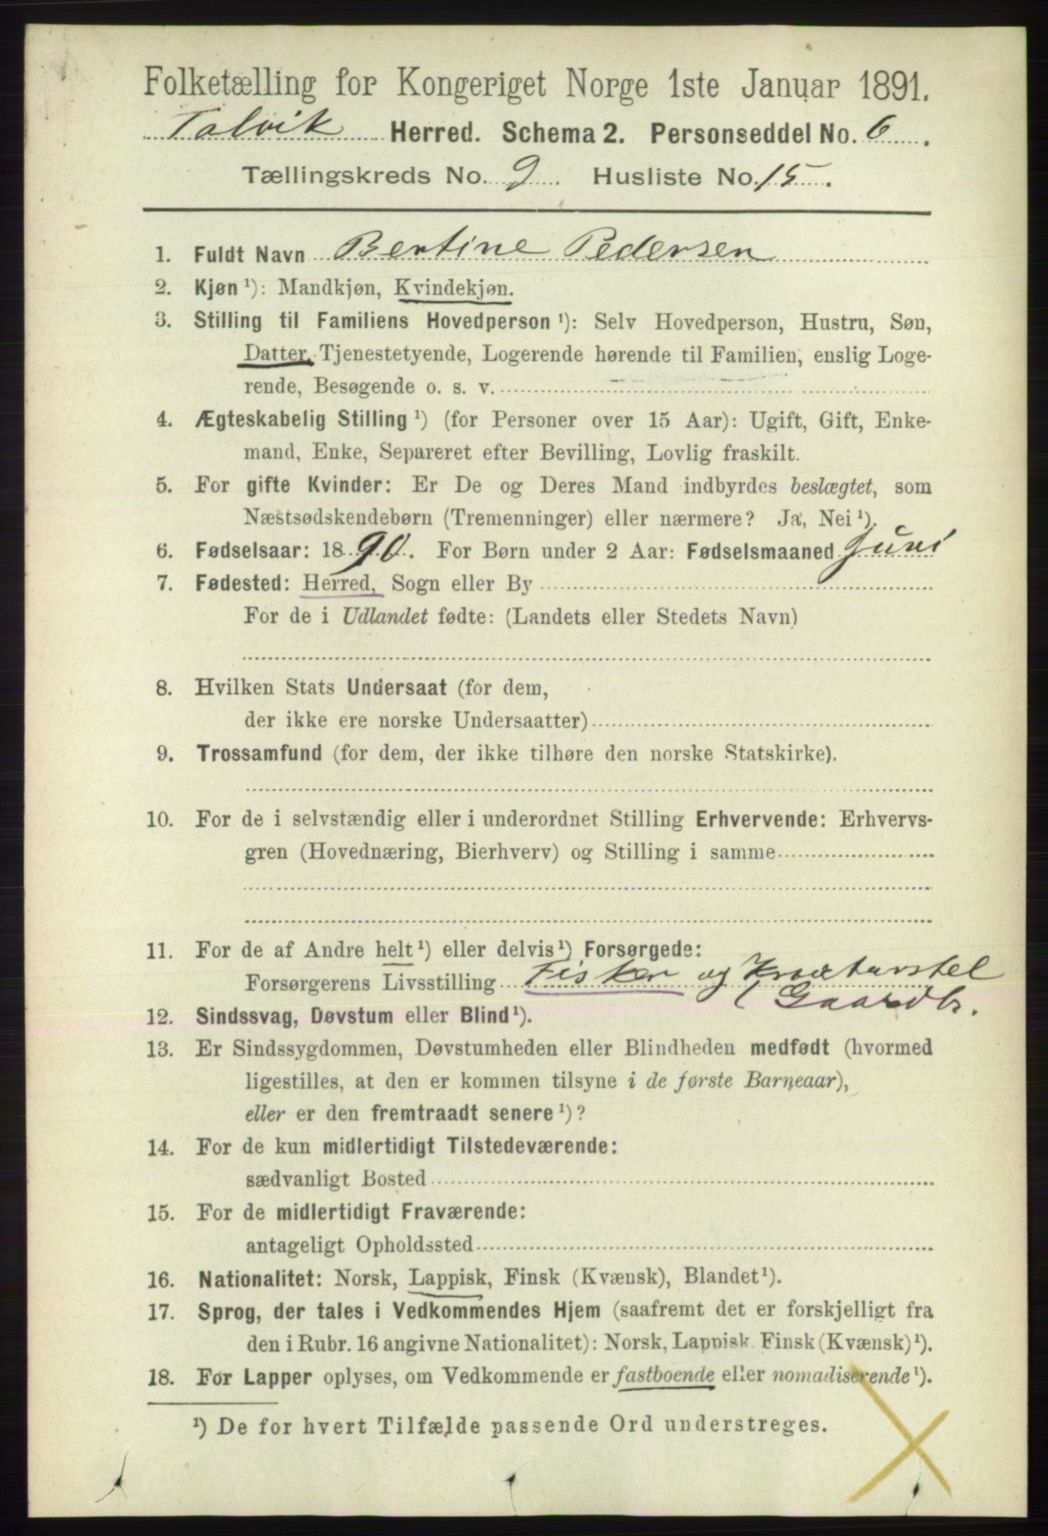 Folketælling for Kongeriget Norge 1ste Januar 1891.
Talvik Herred. Schema 2. Personseddel No. 6.
Tællingskreds No. 9. Husliste No. 15.
1. Fuldt Navn Bertine Pedersen
2. Kjøn ¹): Mandkjøn, Kvindekjøn.
3. Stilling til Familiens Hovedperson ¹): Selv Hovedperson, Hustru, Søn,
Datter, Tjenestetyende, Logerende hørende til Familien, enslig Loge-
rende, Besøgende o. s. v.
4. Ægteskabelig Stilling ¹) (for Personer over 15 Aar): Ugift, Gift, Enke-
mand, Enke, Separeret efter Bevilling, Lovlig fraskilt.
5. For gifte Kvinder: Er De og Deres Mand indbyrdes beslægtet, som
Næstsødskendebørn (Tremenninger) eller nærmere? Ja, Nei ¹).
6. Fødselsaar: 1890. For Børn under 2 Aar: Fødselsmaaned Juni
7. Fødested: Herred, Sogn eller By
For de i Udlandet fødte: (Landets eller Stedets Navn)
8. Hvilken Stats Undersaat (for dem,
der ikke ere norske Undersaatter)
9. Trossamfund (for dem, der ikke tilhøre den norske Statskirke).
10. For de i selvstændig eller i underordnet Stilling Erhvervende: Erhvervs-
gren (Hovednæring, Bierhverv) og Stilling i samme
11. For de af Andre helt ¹) eller delvis ¹) Forsørgede:
Forsørgerens Livsstilling Fisker og
Gaardbr.
12. Sindssvag, Døvstum eller Blind ¹).
13. Er Sindssygdommen, Døvstumheden eller Blindheden medfødt (hvormed
ligestilles, at den er kommen tilsyne i de første Barneaar),
eller er den fremtraadt senere ¹)?
14. For de kun midlertidigt Tilstedeværende:
sædvanligt Bosted
15. For de midlertidigt Fraværende:
antageligt Opholdssted
16. Nationalitet: Norsk, Lappisk, Finsk (Kvænsk), Blandet ¹).
17. Sprog, der tales i Vedkommendes Hjem (saafremt det er forskjelligt fra
den i Rubr. 16 angivne Nationalitet): Norsk, Lappisk, Finsk (Kvænsk) ¹).
18. For Lapper oplyses, om Vedkommende er fastboende eller nomadiserende ¹).
¹) De for hvert Tilfælde passende Ord understreges.